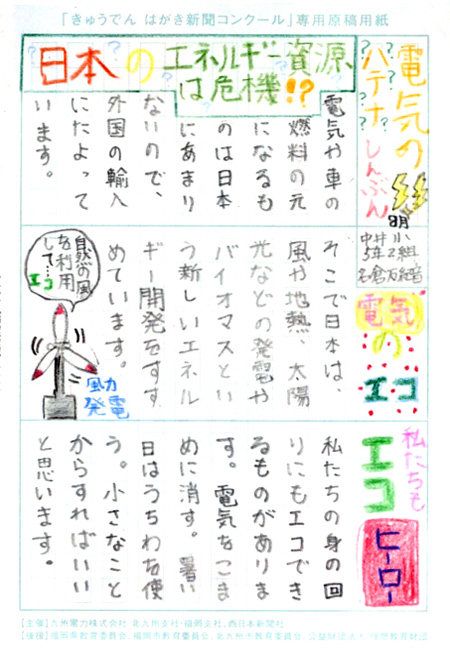 「きゅうでん はがき新聞コンクール」専用原稿用紙
電気の
ハテナ
しんぶん
8月
中井小
5年2組
日本の
エネルギー資源
は危機!?
電気や車の
燃料の元
になるも
のは日本
にあまり
ないので、
外国の輸入
にたよって
います。
電気
の
エコ
そこで日本は、
風や地熱、太陽
光などの発電や
バイオマスとい
う新しいエネル
ギー開発をすす
めています。
自然の風
を利用
して…
エコ
風力
発電
私たちも
エコ
ヒーロー
私たちの身の回
りにもエコでき
るものがありま
す。電気をこま
めに消す。暑い
日はうちわを使
う。小さなこと
からすればいい
と思います。
【主催】九州電力株式会社 北九州支社・福岡支社、西日本新聞社
【後援】福岡県教育委員会、福岡市教育委員会、北九州市教育委員会、公益財団法人 理想教育財団